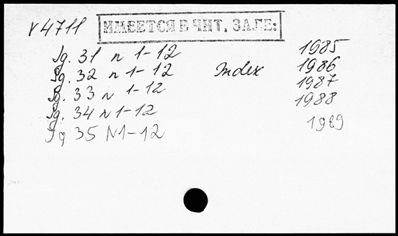 V4711 ИМЕЕТСЯ В ЧИТ. ЗАЛЕ:
Jg. 31 n 1-12 1985
Jg. 32 n 1-12 Index 1986
Jg. 33 n 1-12 1987
Jg. 34 n 1-12 1988
Jg 35 N1-12 1989